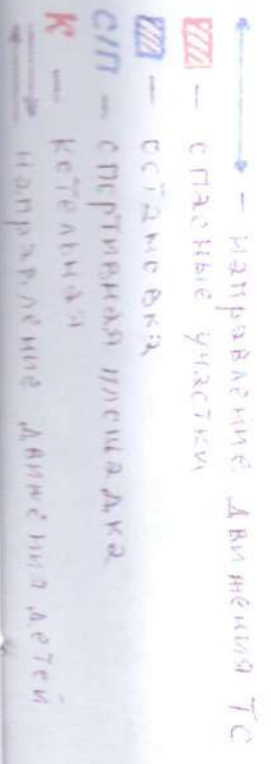 - направление движения ТС
- опасные участки
- остановка
С/П - спортивная площадка
К - котельная
направление движения детей